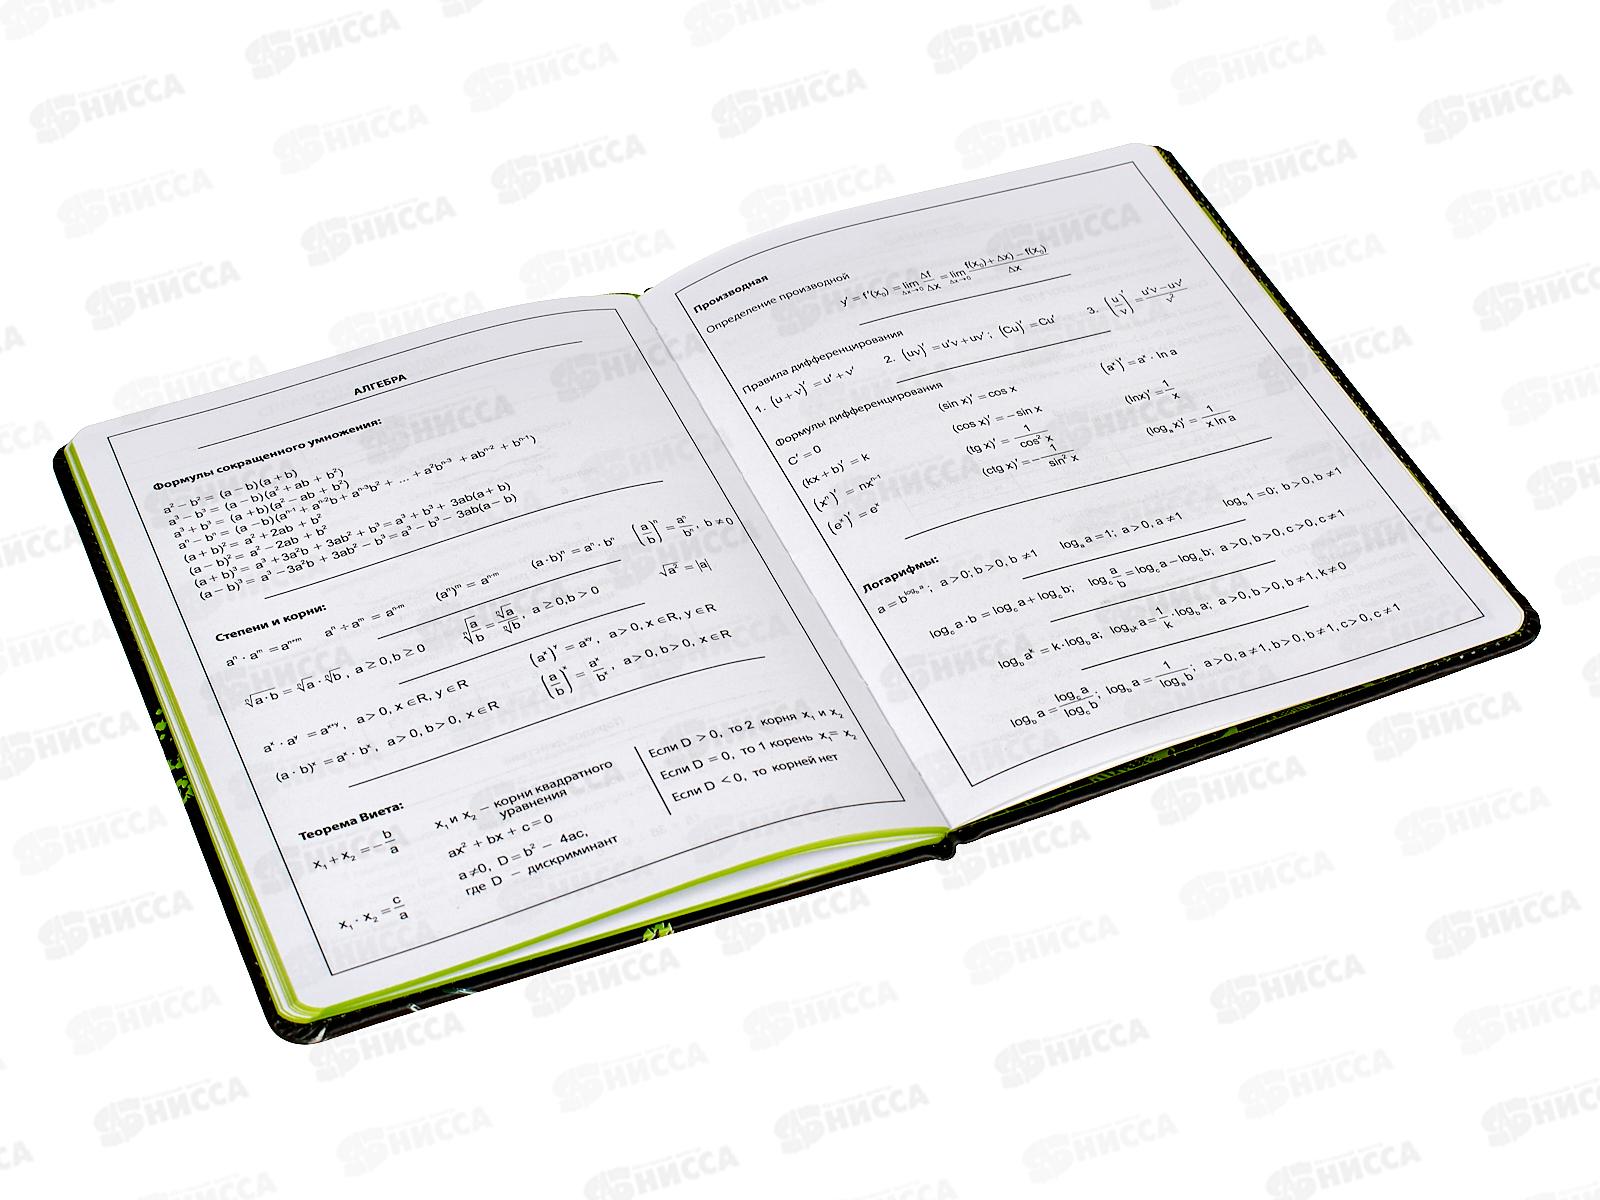 АЛГЕБРА
Формулы сокращенного умножения:
a² − b² = (a − b)(a + b)
a³ − b³ = (a − b)(a² + ab + b²)
a³ + b³ = (a + b)(a² − ab + b²)
aⁿ − bⁿ = (a − b)(aⁿ⁻¹ + aⁿ⁻²b + aⁿ⁻³b² + ... + a²bⁿ⁻³ + abⁿ⁻² + bⁿ⁻¹)
(a + b)² = a² + 2ab + b²
(a − b)² = a² − 2ab + b²
(a + b)³ = a³ + 3a²b + 3ab² + b³ = a³ + b³ + 3ab(a + b)
(a − b)³ = a³ − 3a²b + 3ab² − b³ = a³ − b³ − 3ab(a − b)
Степени и корни:
aⁿ · aᵐ = aⁿ⁺ᵐ aⁿ ÷ aᵐ = aⁿ⁻ᵐ (aⁿ)ᵐ = aⁿ·ᵐ (a · b)ⁿ = aⁿ · bⁿ (a/b)ⁿ = aⁿ/bⁿ, b ≠ 0
ⁿ√a · b = ⁿ√a · ⁿ√b, a ≥ 0, b ≥ 0 ⁿ√a/b = ⁿ√a/ⁿ√b, a ≥ 0, b > 0 √a² = |a|
aˣ · aʸ = aˣ⁺ʸ, a > 0, x ∈ R, y ∈ R (aˣ)ʸ = aˣʸ, a > 0, x ∈ R, y ∈ R
(a · b)ˣ = aˣ · bˣ, a > 0, b > 0, x ∈ R (a/b)ˣ = aˣ/bˣ, a > 0, b > 0, x ∈ R
Теорема Виета:
x₁ + x₂ = − b/a
x₁ · x₂ = c/a
x₁ и x₂ − корни квадратного
уравнения
ax² + bx + c = 0
a ≠ 0, D = b² − 4ac,
где D − дискриминант
Если D > 0, то 2 корня x₁ и x₂
Если D = 0, то 1 корень x₁ = x₂
Если D < 0, то корней нет
Производная
Определение производной
y′ = f′(x₀) = lim Δx→0 Δf/Δx = lim Δx→0 f(x₀) + Δx) − f(x₀)/Δx
Правила дифференцирования
1. (u + v)′ = u′ + v′ 2. (uv)′ = u′v + uv′; (Cu)′ = Cu′ 3. (u/v)′ = u′v − uv′/v²
Формулы дифференцирования
C′ = 0 (sin x)′ = cos x (aˣ)′ = aˣ · ln a
(kx + b)′ = k (cos x)′ = − sin x (lnx)′ = 1/x
(xⁿ)′ = nxⁿ⁻¹ (tg x)′ = 1/cos² x (logₐx)′ = 1/x ln a
(eˣ)′ = eˣ (ctg x)′ = − 1/sin² x
Логарифмы:
a = b^(log_b a); a > 0; b > 0, b ≠ 1 logₐ a = 1; a > 0, a ≠ 1 log_b 1 = 0; b > 0, b ≠ 1
log_c a · b = log_c a + log_c b; log_c a/b = log_c a − log_c b; a > 0, b > 0, c > 0, c ≠ 1
log_b aᵏ = k · log_b a; log_bᵏ a = 1/k · log_b a; a > 0, b > 0, b ≠ 1, k ≠ 0
log_b a = log_c a/log_c b; log_b a = 1/logₐ b; a > 0, a ≠ 1, b > 0, b ≠ 1, c > 0, c ≠ 1
НИССА